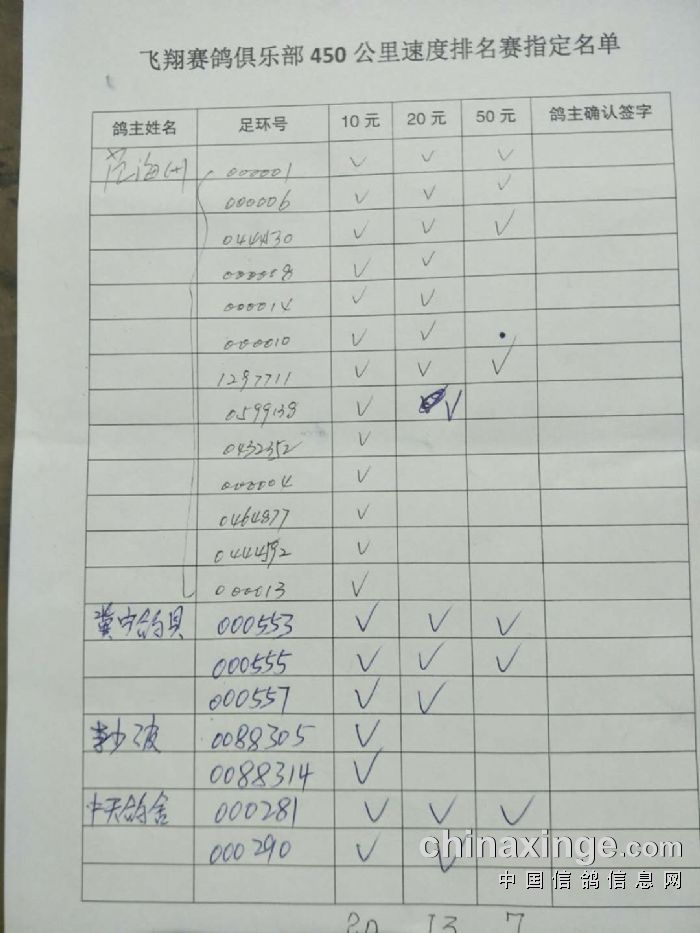 飞翔赛鸽俱乐部 450 公里速度排名赛指定名单
鸽主姓名 足环号 10 元 20 元 50 元 鸽主确认签字
沧海州 000001 ✓ ✓ ✓
000006 ✓ ✓ ✓
044430 ✓ ✓ ✓
000008 ✓ ✓
000014 ✓ ✓
000010 ✓ ✓
1287711 ✓ ✓ ✓
0599138 ✓ ✓
0432352 ✓
000004 ✓
0464877 ✓
0444592 ✓
000013 ✓
冀中鸽具 000553 ✓ ✓ ✓
000555 ✓ ✓ ✓
000557 ✓ ✓
李少波 0088305 ✓
0088314 ✓
中天鸽舍 000281 ✓ ✓ ✓
000290 ✓ ✓
chinaxinge.com
中国信鸽信息网
20 13 7